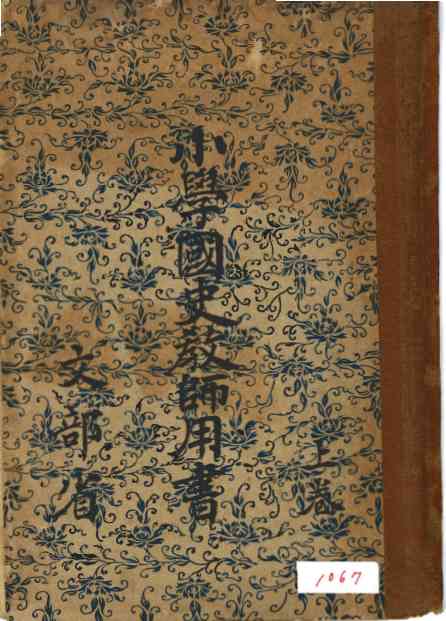 上卷
小學國史教師用書
文部省
1067